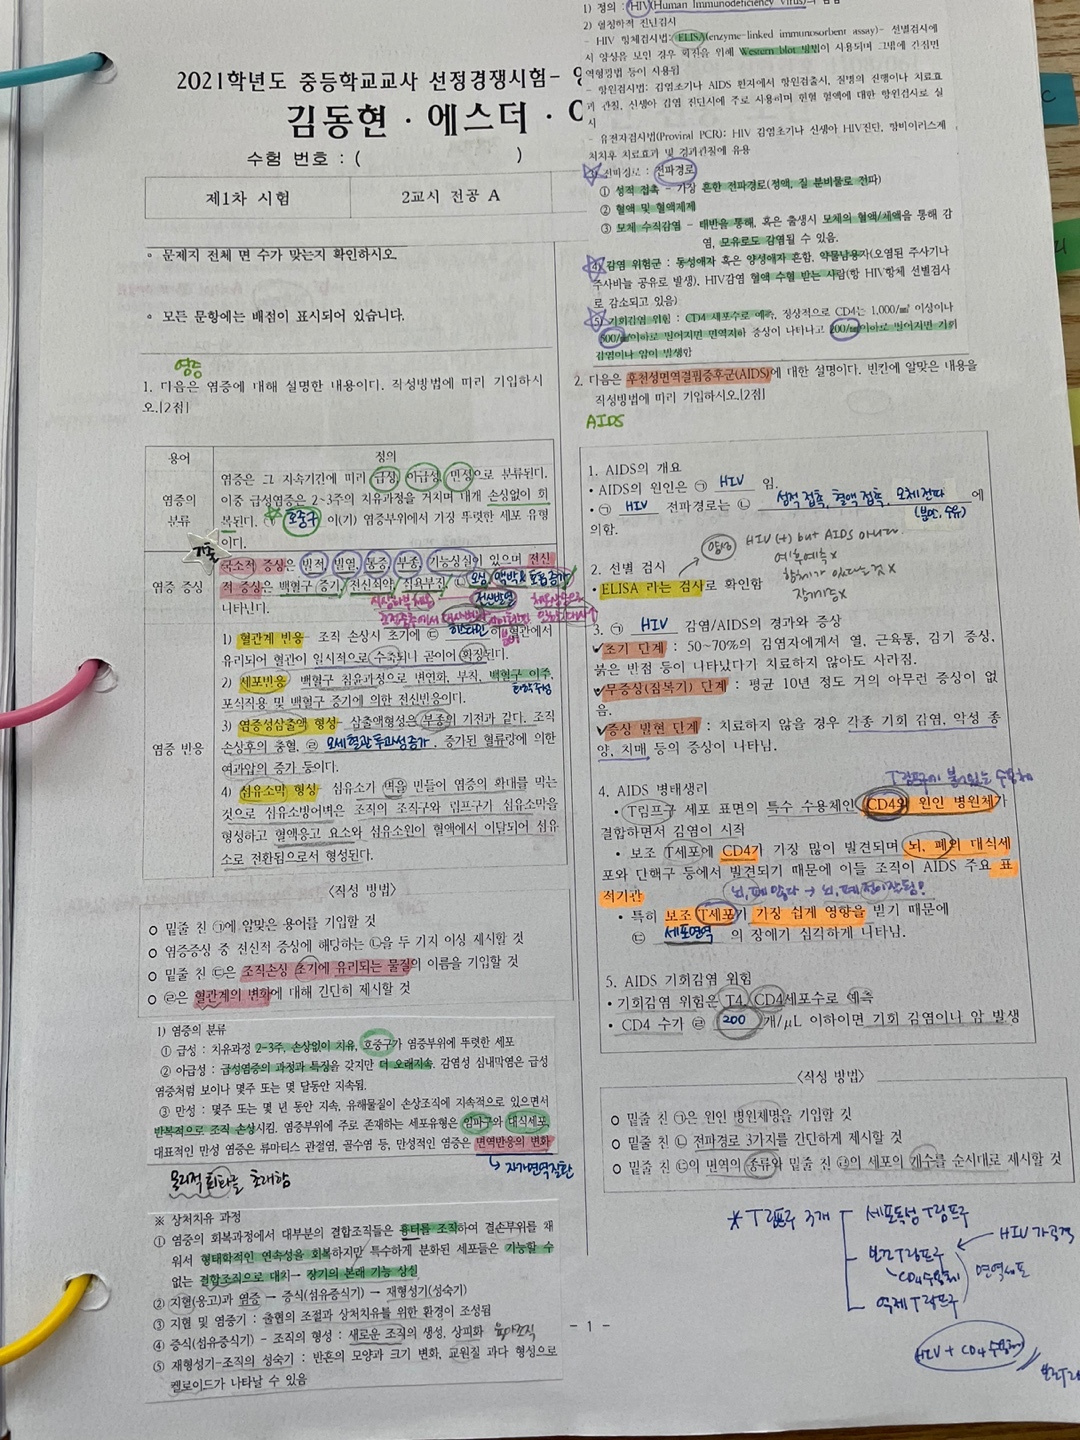 2021학년도 중등학교교사 선정경쟁시험-
김동현 · 에스더 ·
수험 번호 : ( )
제1차 시험
2교시 전공 A
∘ 문제지 전체 면 수가 맞는지 확인하시오.
∘ 모든 문항에는 배점이 표시되어 있습니다.
염증
1. 다음은 염증에 대해 설명한 내용이다. 작성방법에 따라 기입하시
오.[2점]
용어
정의
염증의
분류
염증은 그 지속기간에 따라 급성, 아급성, 만성으로 분류된다.
이중 급성염증은 2~3주의 치유과정을 거치며 대개 손상없이 회
복된다. ㉠ 호중구 이(가) 염증부위에서 가장 뚜렷한 세포 유형
이다.
기출
염증 증상
국소적 증상은 발적, 발열, 통증, 부종, 기능상실이 있으며 전신
적 증상은 백혈구 증가, 전신쇠약, 식욕부진, ㉡ 오심, 맥박&호흡증가
나타난다.
전신발열
염증 반응
1) 혈관계 반응- 조직 손상시 초기에 ㉢ 히스타민 이 혈관에서
유리되어 혈관이 일시적으로 수축되나 곧이어 확장된다.
2) 세포반응- 백혈구 침윤과정으로 변연화, 부착, 백혈구 이주,
포식작용 및 백혈구 증가에 의한 전신반응이다.
3) 염증성삼출액 형성- 삼출액형성은 부종의 기전과 같다. 조직
손상후의 충혈, ㉣ 모세혈관투과성증가, 증가된 혈류량에 의한
여과압의 증가 등이다.
4) 섬유소막 형성- 섬유소가 벽을 만들어 염증의 확대를 막는
것으로 섬유소방어벽은 조직의 조직구와 림프구가 섬유소막을
형성하고 혈액응고 요소와 섬유소원이 혈액에서 이탈되어 섬유
소로 전환됨으로서 형성된다.
<작성 방법>
○ 밑줄 친 ㉠에 알맞은 용어를 기입할 것
○ 염증증상 중 전신적 증상에 해당하는 ㉡을 두 가지 이상 제시할 것
○ 밑줄 친 ㉢은 조직손상 초기에 유리되는 물질의 이름을 기입할 것
○ ㉣은 혈관계의 변화에 대해 간단히 제시할 것
1) 염증의 분류
① 급성 : 치유과정 2-3주, 손상없이 치유, 호중구가 염증부위에 뚜렷한 세포
② 아급성 : 급성염증의 과정과 특징을 갖지만 더 오래지속. 감염성 심내막염은 급성
염증처럼 보이나 몇주 또는 몇 달동안 지속됨.
③ 만성 : 몇주 또는 몇 년 동안 지속, 유해물질이 손상조직에 지속적으로 있으면서
반복적으로 조직 손상시킴. 염증부위에 주로 존재하는 세포유형은 임파구와 대식세포,
대표적인 만성 염증은 류마티스 관절염, 골수염 등, 만성적인 염증은 면역반응의 변화
↳ 자가면역질환
초래함
※ 상처치유 과정
① 염증의 회복과정에서 대부분의 결합조직들은 흉터를 조직하여 결손부위를 채
워서 형태학적인 연속성을 회복하지만 특수하게 분화된 세포들은 기능할 수
없는 결합조직으로 대치→ 장기의 본래 기능 상실
② 지혈(응고)과 염증 → 증식(섬유증식기) → 재형성기(성숙기)
③ 지혈 및 염증기 : 출혈의 조절과 상처치유를 위한 환경이 조성됨
④ 증식(섬유증식기) - 조직의 형성 : 새로운 조직의 생성, 상피화 육아조직
⑤ 재형성기-조직의 성숙기 : 반흔의 모양과 크기 변화, 교원질 과다 형성으로
켈로이드가 나타날 수 있음
- 1 -
1) 정의 : HIV(Human Immunodeficiency Virus)
2) 혈청학적 진단검사
- HIV 항체검사법: ELISA(enzyme-linked immunosorbent assay)- 선별검사에
서 양성을 보인 경우 확진을 위해 Western blot 방법이 사용되며 그밖에 간접면
역형광법 등이 사용됨
- 항원검사법: 감염초기나 AIDS 환자에서 항원검출시, 질병의 진행이나 치료효
과 관찰, 신생아 감염 진단시에 주로 사용하며 헌혈 혈액에 대한 항원검사로 실
시
- 유전자검사법(Proviral PCR): HIV 감염초기나 신생아 HIV진단, 항바이러스제
처치후 치료효과 및 경과관찰에 유용
전파경로
① 성적 접촉 - 가장 흔한 전파경로(정액, 질 분비물로 전파)
② 혈액 및 혈액제제
③ 모체 수직감염 - 태반을 통해, 혹은 출생시 모체의 혈액/체액을 통해 감
염, 모유로도 감염될 수 있음.
4) 감염 위험군 : 동성애자 혹은 양성애자 흔함, 약물남용자(오염된 주사기나
주사바늘 공유로 발생), HIV감염 혈액 수혈 받는 사람(항 HIV항체 선별검사
로 감소되고 있음)
5) 기회감염 위험 : CD4 세포수로 예측, 정상적으로 CD4는 1,000/㎣ 이상이나
500/㎣이하로 떨어지면 면역저하 증상이 나타나고 200/㎣이하로 떨어지면 기회
감염이나 암이 발생함
2. 다음은 후천성면역결핍증후군(AIDS)에 대한 설명이다. 빈칸에 알맞은 내용을
작성방법에 따라 기입하시오.[2점]
AIDS
1. AIDS의 개요
• AIDS의 원인은 ㉠ HIV 임.
• ㉠ HIV 전파경로는 ㉡ 성적 접촉, 혈액 접촉, 모체전파 에
(분만, 수유)
의함.
양성 HIV(+) but AIDS 아니다.
예후예측×
2. 선별 검사
• ELISA 라는 검사로 확인함
3. ㉠ HIV 감염/AIDS의 경과와 증상
✓초기 단계 : 50~70%의 감염자에게서 열, 근육통, 감기 증상,
붉은 반점 등이 나타났다가 치료하지 않아도 사라짐.
✓무증상(잠복기) 단계 : 평균 10년 정도 거의 아무런 증상이 없
음.
✓증상 발현 단계 : 치료하지 않을 경우 각종 기회 감염, 악성 종
양, 치매 등의 증상이 나타남.
T림프구에 붙어있는 수용체
4. AIDS 병태생리
• T림프구 세포 표면의 특수 수용체인 CD4와 원인 병원체가
결합하면서 감염이 시작
• 보조 T세포에 CD4가 가장 많이 발견되며 뇌, 폐의 대식세
포와 단핵구 등에서 발견되기 때문에 이들 조직이 AIDS 주요 표
적기관
• 특히 보조 T세포가 가장 쉽게 영향을 받기 때문에
㉢ 세포면역 의 장애가 심각하게 나타남.
5. AIDS 기회감염 위험
• 기회감염 위험은 T4, CD4세포수로 예측
• CD4 수가 ㉣ 200 개/μL 이하이면 기회 감염이나 암 발생
<작성 방법>
○ 밑줄 친 ㉠은 원인 병원체명을 기입할 것
○ 밑줄 친 ㉡ 전파경로 3가지를 간단하게 제시할 것
○ 밑줄 친 ㉢의 면역의 종류와 밑줄 친 ㉣의 세포의 개수를 순서대로 제시할 것
* T림프구 3개
세포독성 T림프구
보조T림프구 ← HIV가 공격
CD4수용체
면역세포
억제 T림프구
HIV + CD4 수용체